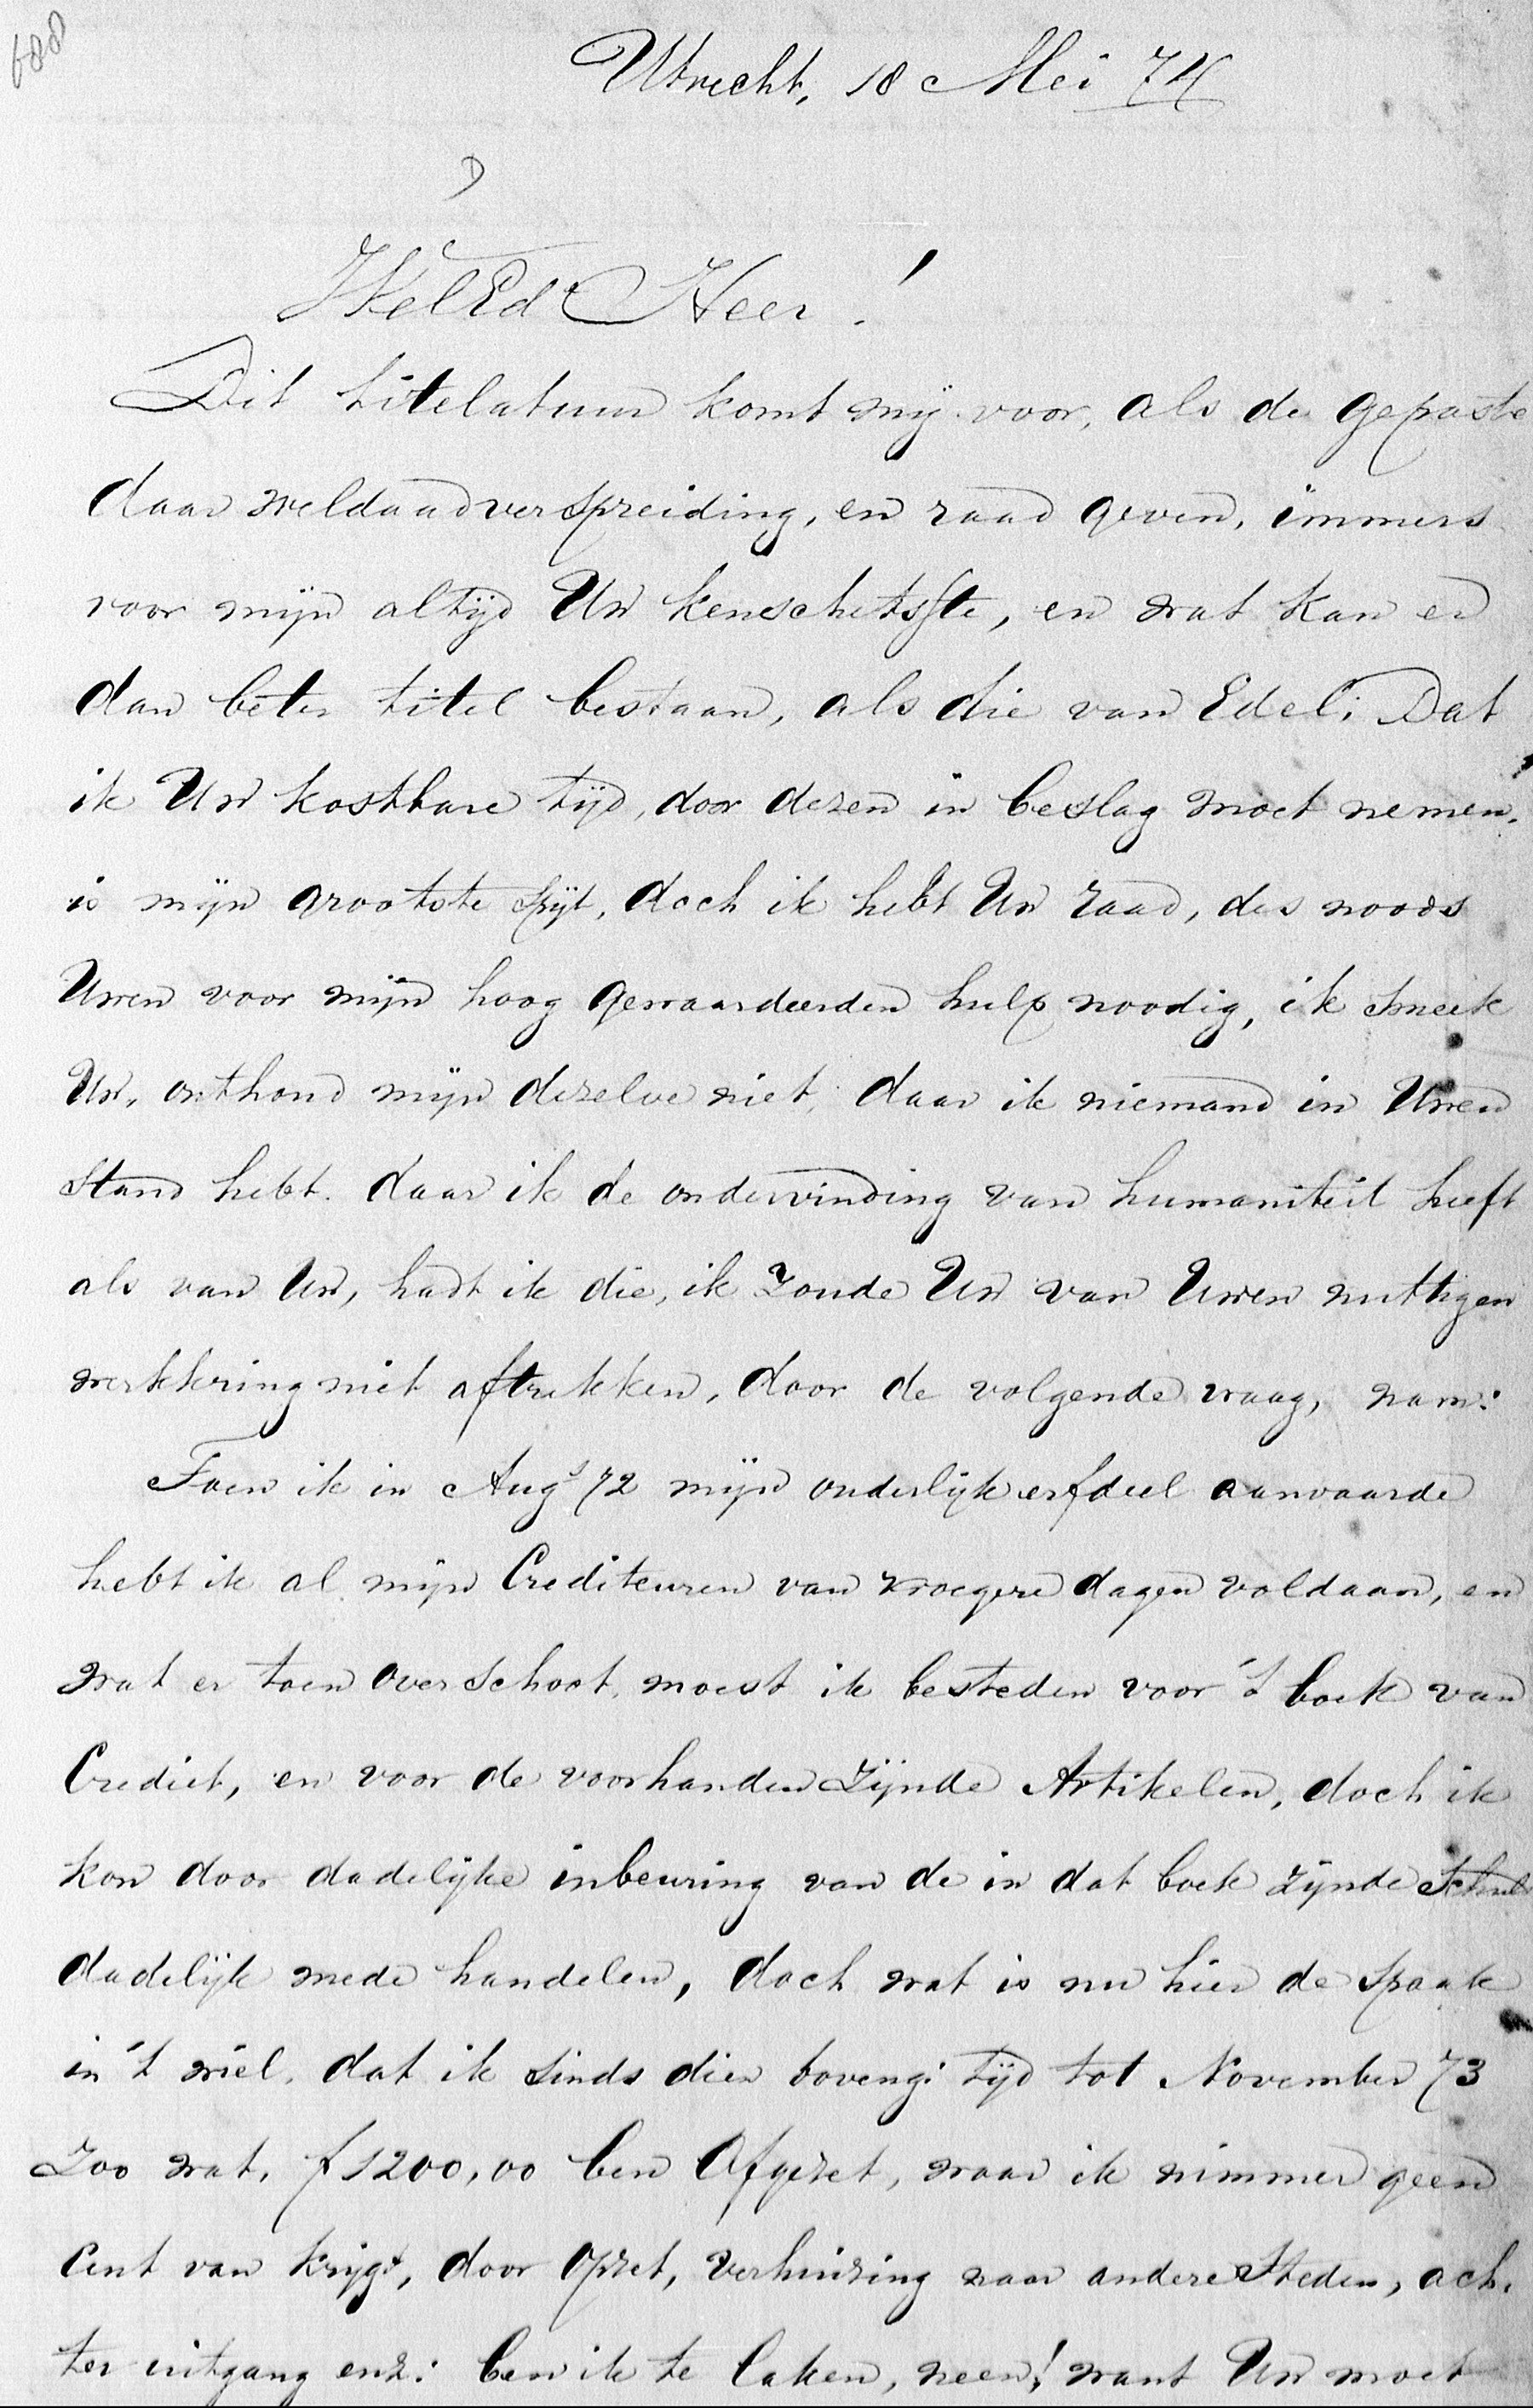 688
Utrecht, 18 Mei 74
WelEd Heer!
Dit titelatuur komt mij voor, als de gepaste
daar weldaadverspreiding, en raad geven, immers
voor mijn altijd Uw kenschetsste, en wat kan er
dan beter titel bestaan, als die van Edel; Dat
ik Uw kostbare tijd, door dezen in beslag moet nemen,
is mijn grootste spijt, doch ik hebt Uw raad, des noods
Uwen voor mijn hoog gewaardeerden hulp noodig, ik smeek
Uw, onthoud mijn dezelve niet, daar ik niemand in Uwen
stand hebt. daar ik de ondervinding van humaniteit heeft
als van Uw, hadt ik die, ik zoude Uw van Uwen nuttigen
werkkring niet aftrekken, door de volgende vraag, nam:
Toen ik in Augs 72 mijn ouderlijk erfdeel aanvaarde
hebt ik al mijn Crediteuren van vroegere dagen voldaan, en
wat er toen overschoot, moest ik besteden voor 't boek van
Crediet, en voor de voorhanden zijnde Artikelen, doch ik
kon door dadelijke inbeuring van de in dat boek zijnde Schuld
dadelijk mede handelen, doch wat is nu hier de spaak
in 't wiel, dat ik sinds dien boveng: tijd tot November 73
Zoo wat, f 1200,00 ben Afgezet, waar ik nimmer geen
Cent van krijgt, door Opzet, verhuizing naar andere Steden, ach.
ter uitgang enz: ben ik te laken, neen! want Uw moet